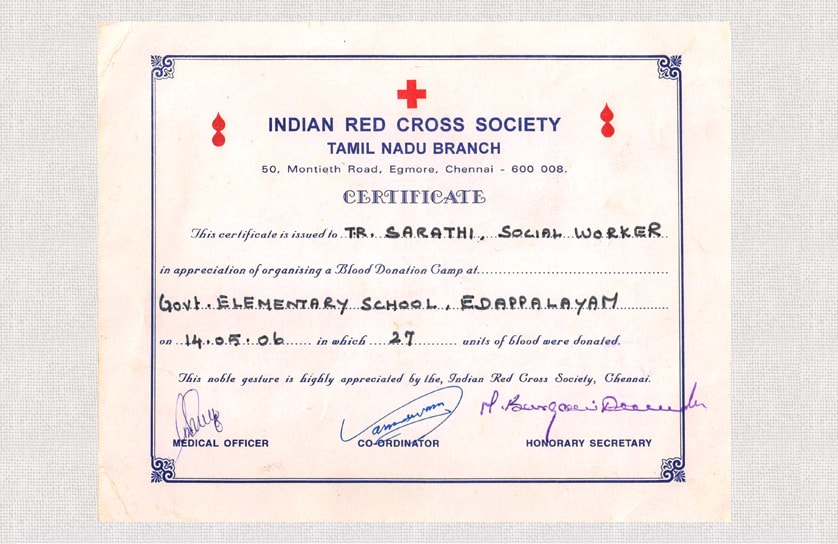 INDIAN RED CROSS SOCIETY
TAMIL NADU BRANCH
50, Montieth Road, Egmore, Chennai - 600 008.
CERTIFICATE
This certificate is issued to T.R. SARATHI, SOCIAL WORKER
in appreciation of organising a Blood Donation Camp at
Govt. ELEMENTARY SCHOOL, EDAPPALAYAM
on 14.05.06 in which 27 units of blood were donated.
This noble gesture is highly appreciated by the, Indian Red Cross Society, Chennai.
MEDICAL OFFICER CO-ORDINATOR HONORARY SECRETARY